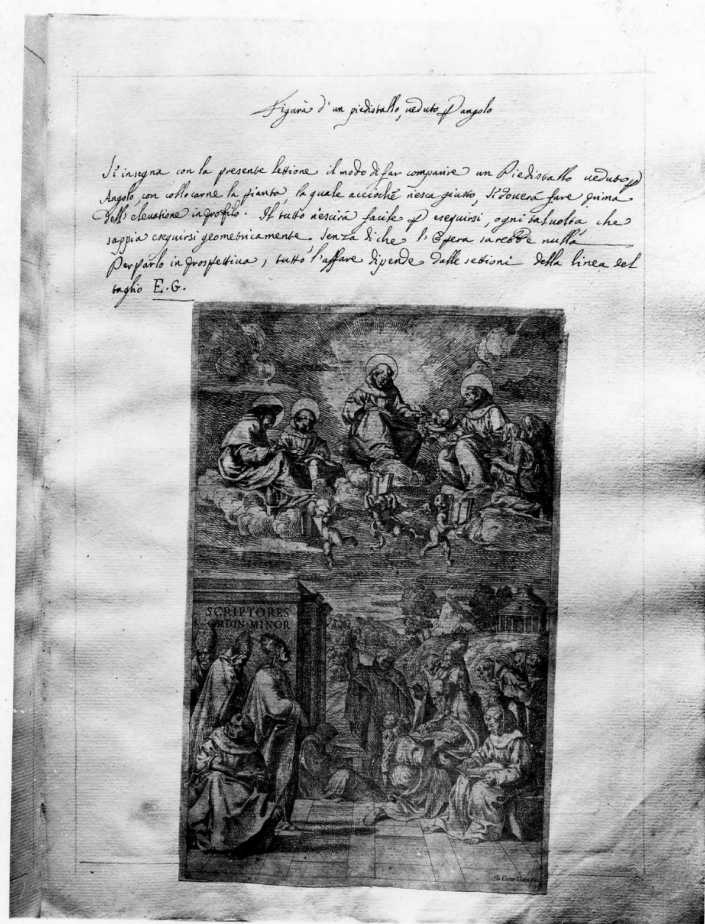 Figura d'un piedistallo, ueduto p angolo
Si insegna con la presente lettione il modo di far comparire un Piedistallo ueduto p
Angolo, con collocarne la pianta, la quale acciochè riesca giusta, si douerà fare prima
dell' eleuatione in profilo. Il tutto riescirà facile p eseguirsi, ogni qualuolta che
sappia eseguirsi geometricamente, senza di che l'Opera sarebbe nulla
Per farlo in prospettiua, tutto l'affare dipende dalle settioni della linea del
taglio E.G.
SCRIPTORES
ORDIN MINOR